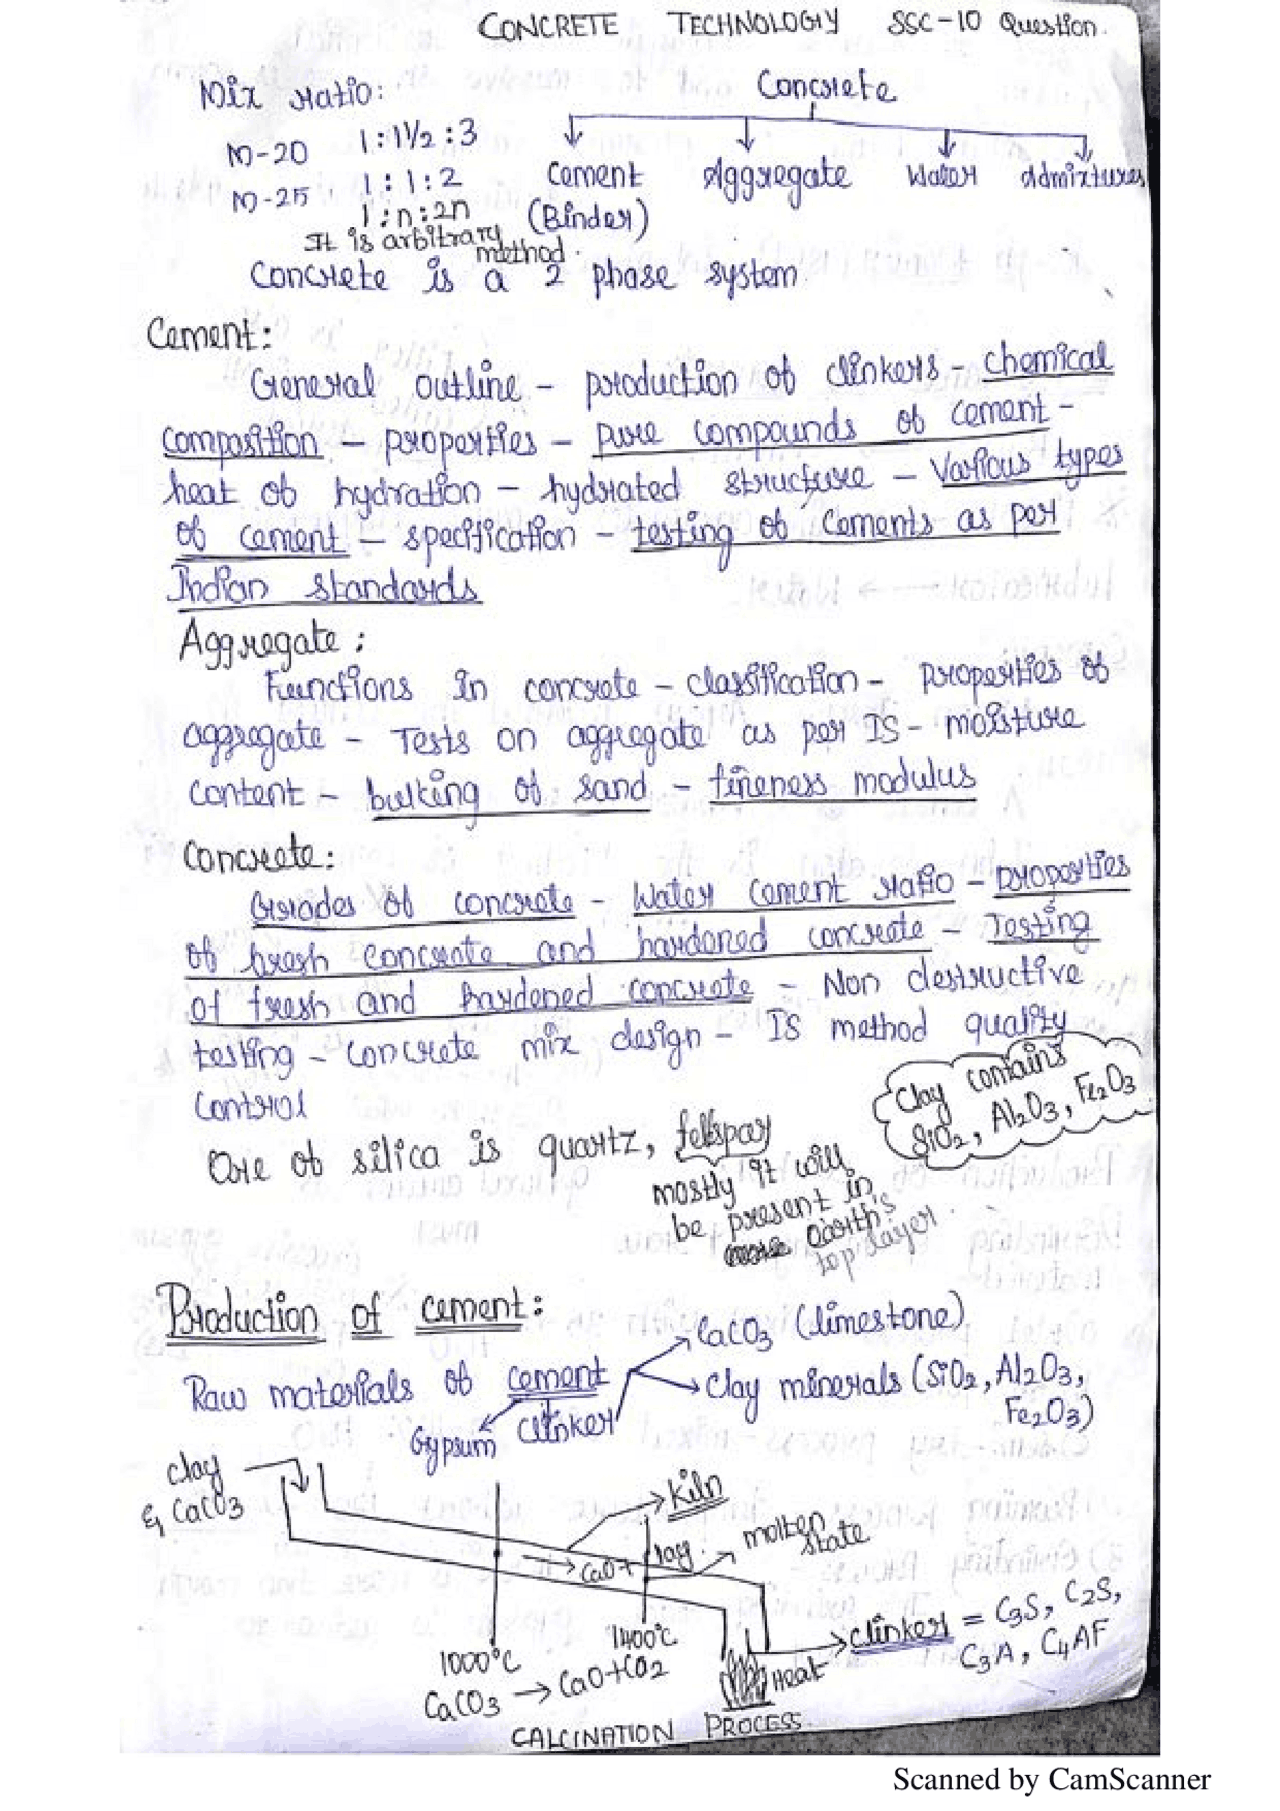 CONCRETE TECHNOLOGY SSC-10 Question.
Mix ratio:
M-20 1:1½:3
M-25 1:1:2
1:n:2n
It is arbitrary method.
Concrete
Cement (Binder)
Aggregate
Water
Admixtures
Concrete is a 2 phase system
Cement:
General outline - production of clinkers - chemical
composition - properties - pure compounds of cement -
heat of hydration - hydrated structure - Various types
of cement - specification - testing of cements as per
Indian standards
Aggregate:
Functions in concrete - classification - properties of
aggregate - Tests on aggregate as per IS - moisture
content - bulking of sand - fineness modulus
Concrete:
Grades of concrete - Water cement ratio - properties
of fresh concrete and hardened concrete - Testing
of fresh and hardened concrete - Non destructive
testing - concrete mix design - IS method quality
control
Clay contains
SiO2, Al2O3, Fe2O3
Ore of silica is quartz, felkspar
mostly it will
be present in
earth's
top layer.
Production of cement:
Raw materials of cement
Gypsum clinker
CaCO3 (limestone)
Clay minerals (SiO2, Al2O3,
Fe2O3)
clay
& CaCO3
Kiln
CaO+ clay.
molten
state
1000°C
1400°C
CaCO3 → CaO+CO2
Heat
clinker = C3S, C2S,
C3A, C4AF
CALCINATION PROCESS.
Scanned by CamScanner